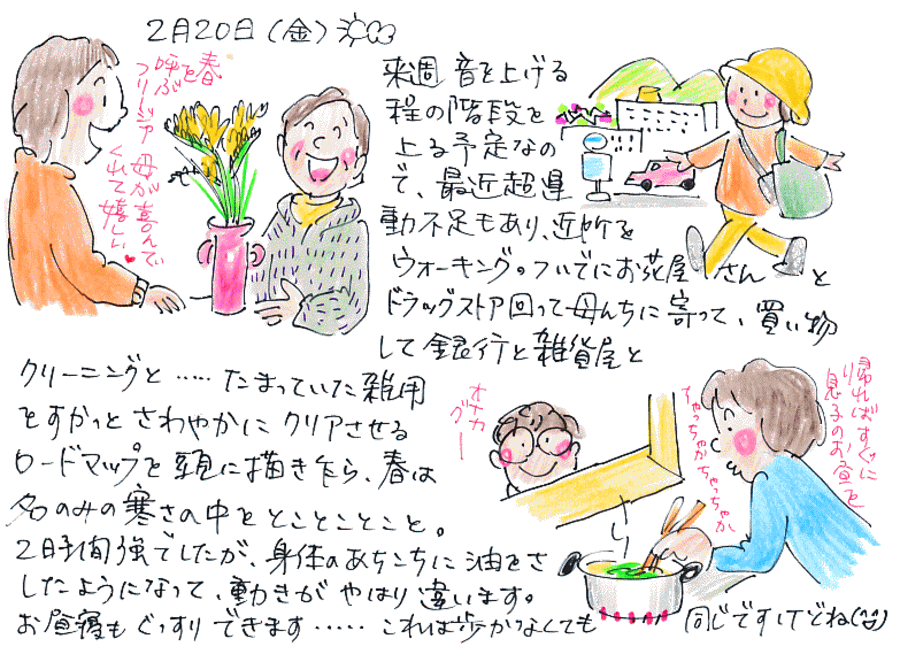 2月20日(金)
春を
呼ぶ
フリージア
母が喜んで
くれて嬉しい
来週 音を上げる
程の階段を
上る予定なの
で、最近超運
動不足もあり、近所を
ウォーキングのついでにお花屋さんと
ドラッグストア回って母んちに寄って、買い物
して銀行と雑貨屋と
クリーニングと……たまっていた雑用
をすかっとさわやかにクリアさせる
ロードマップを頭に描き乍ら、春は
名のみの寒さの中をとことことこと。
2時間強でしたが、身体のあちこちに油をさ
したようになって、動きがやはり違います。
お昼寝もぐっすりできます……これは歩かなくても 同じですけどね(^^)
オナカ
グー
帰ればすぐに
息子のお昼を
ちゃっちゃかちゃっちゃか